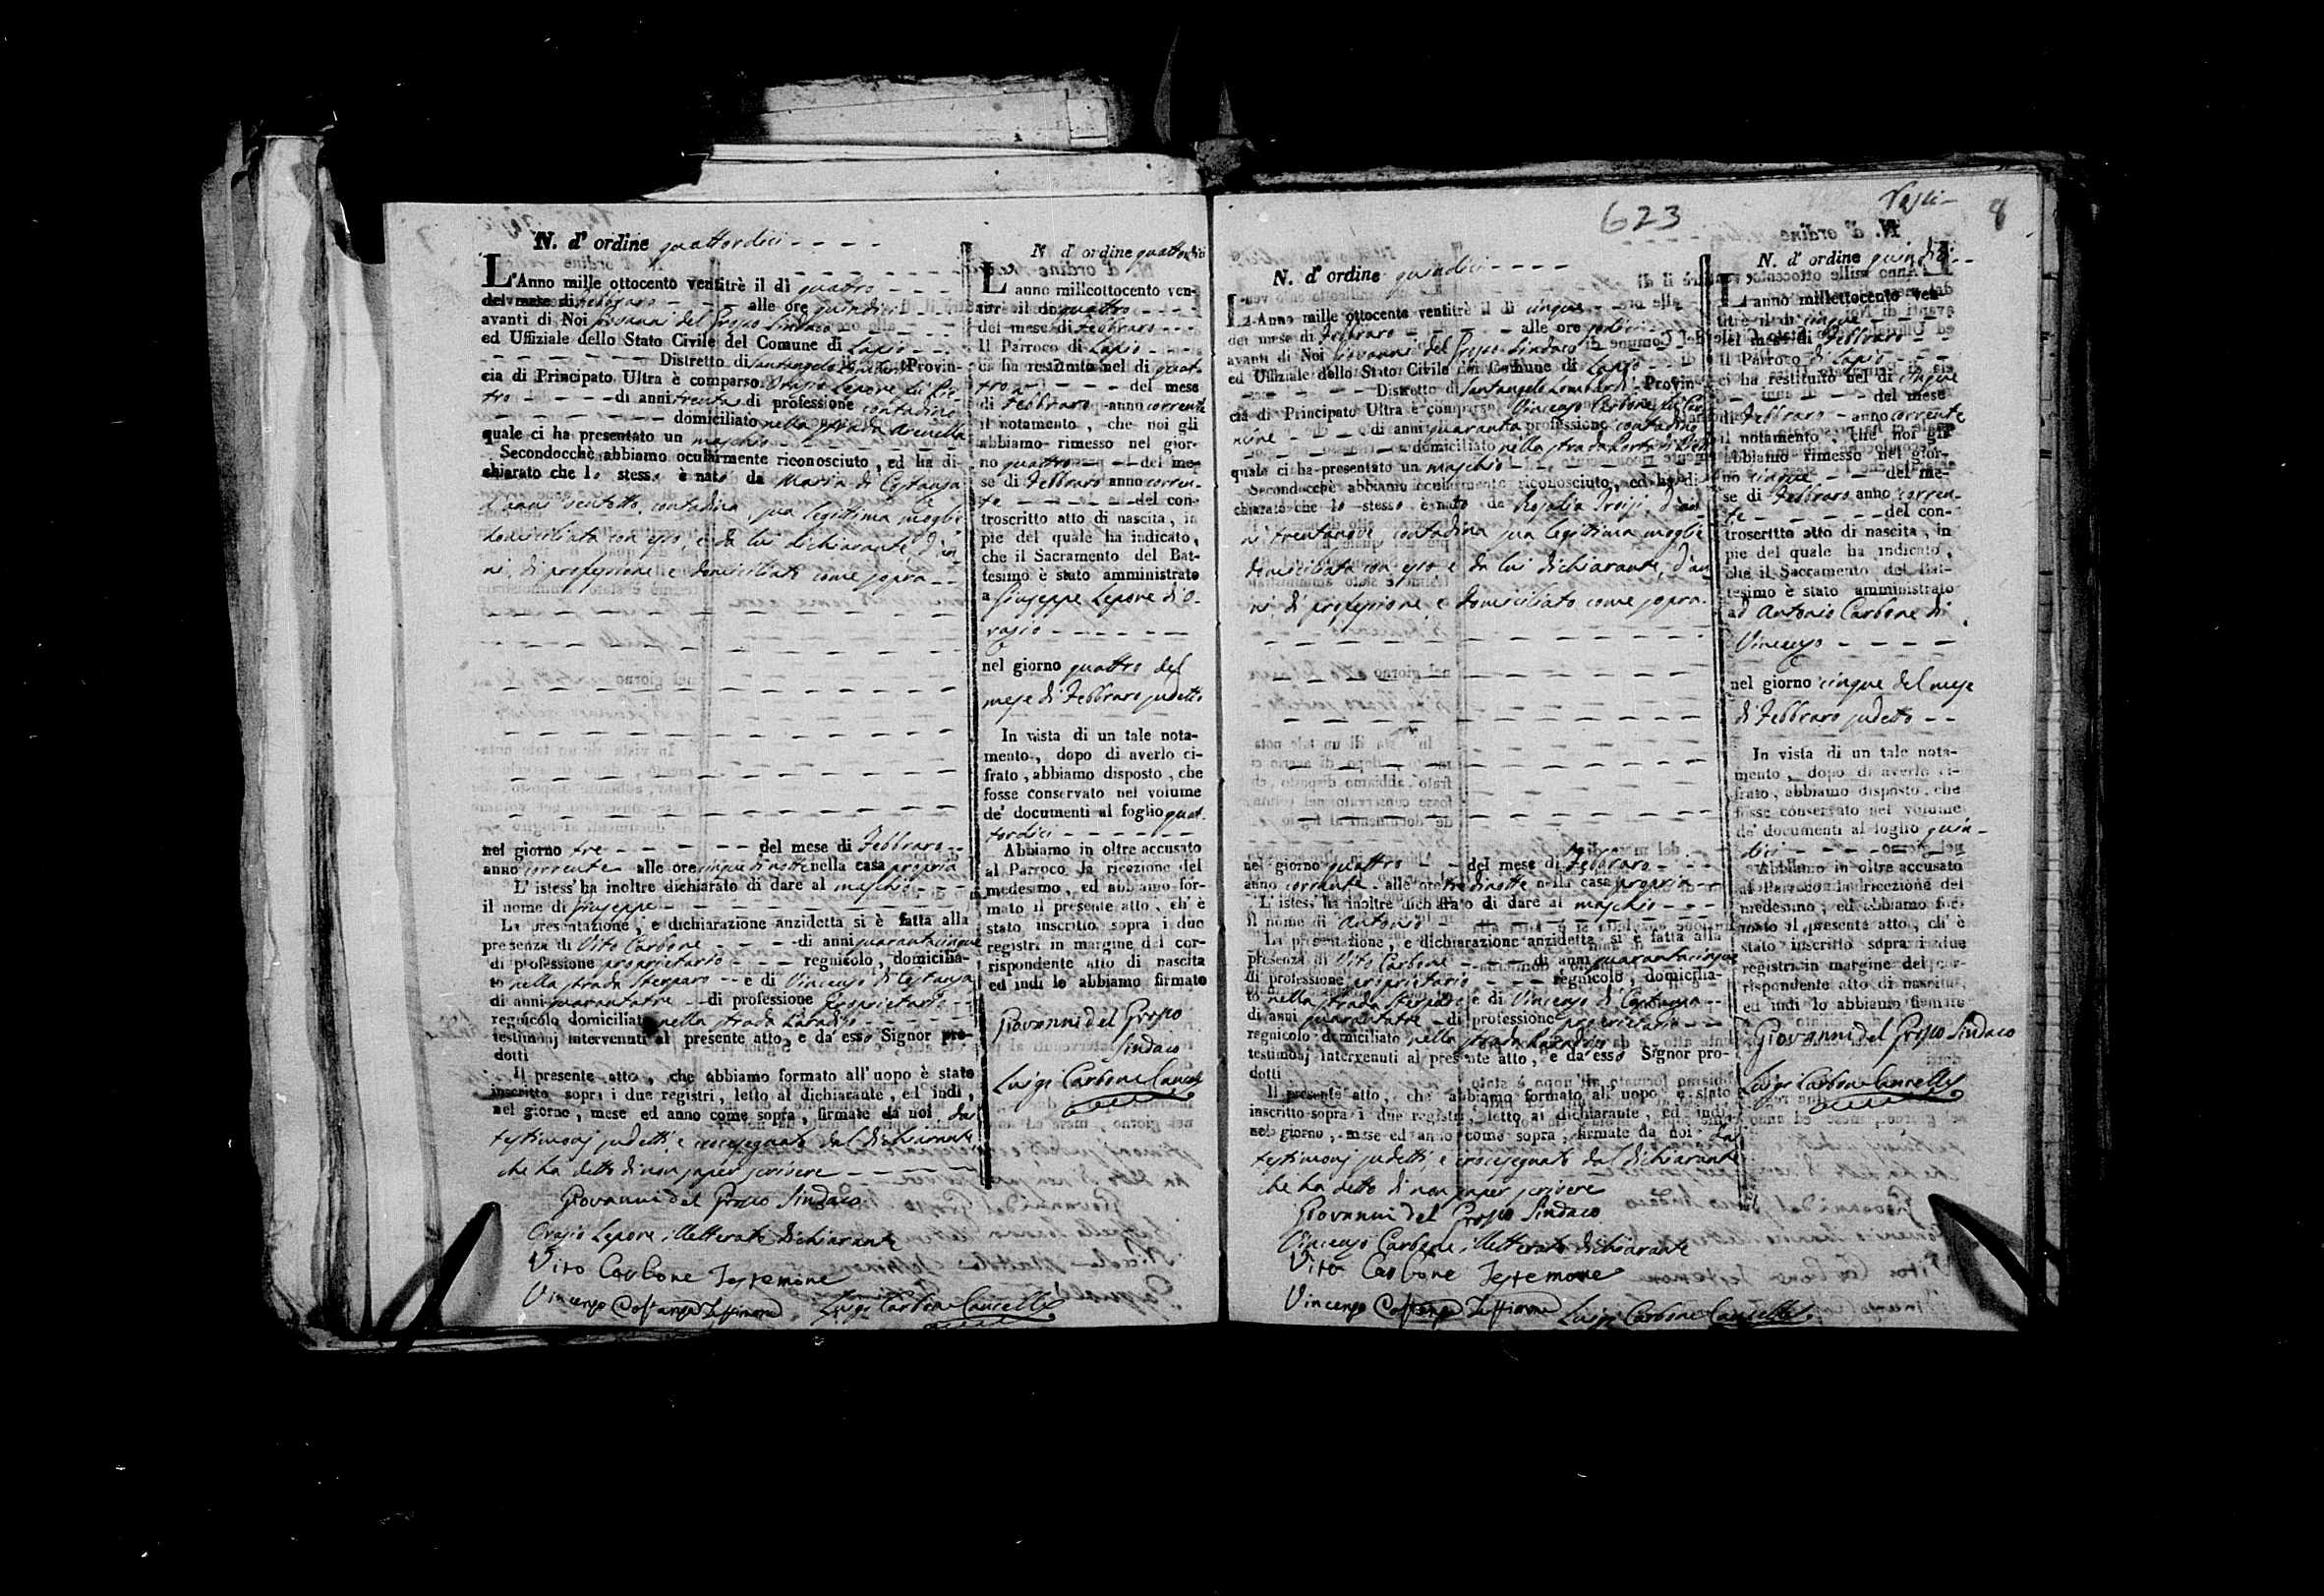 N. d' ordine quattordici
L'Anno mille ottocento ventitrè il dì quattro
del mese di Febbraro alle ore quindici
avanti di Noi Giovanni del Grosso Sindaco
ed Uffiziale dello Stato Civile del Comune di Lapio
Distretto di Santangelo Lombardi Provin-
cia di Principato Ultra è comparso Orazio Lepore di Pie-
tro di anni trenta di professione contadino
domiciliato nella strada Arenella
quale ci ha presentato un maschio
Secondocchè abbiamo ocularmente riconosciuto, ed ha di-
chiarato che lo stesso è nato da Maria di Costanza
d'anni ventotto contadina sua legittima moglie
domiciliata con esso, e da lui dichiarante d'an
ni, di professione e domiciliato come sopra
nel giorno tre del mese di Febbraro
anno corrente alle ore cinque di notte nella casa propria
L' istess' ha inoltre dichiarato di dare al maschio
il nome di Giuseppe
La presentazione, e dichiarazione anzidetta si è fatta alla
presenza di Vito Carbone di anni quarantacinque
di professione proprietario regnicolo, domicilia-
to nella strada Sterparo e di Vincenzo di Costanza
di anni quarantatre di professione proprietario
regnicolo domiciliato nella strada Paradiso
testimonj intervenuti al presente atto, e da esso Signor pro-
dotti
Il presente atto, che abbiamo formato all' uopo è stato
inscritto sopra i due registri, letto al dichiarante, ed indi,
nel giorno, mese ed anno come sopra, firmate da noi da
testimonj sudetti e crocesegnato dal dichiarante
che ha detto di non saper scrivere
Giovanni del Grosso Sindaco
Orazio Lepore illetterato dichiarante
Vito Carbone Testemone
Vincenzo Costanza Testimone Luigi Carbone Cancelle
N d' ordine quattordici
L' anno millcottocento ven-
titrè il dì quattro
del mese di Febbraro
Il Parroco di Lapio
ci ha restituito nel dì quat-
tro del mese
di Febbraro anno corrente
il notamento, che noi gli
abbiamo rimesso nel gior-
no quattro del me-
se di Febbraro anno corren-
te del con-
troscritto atto di nascita, in
pie del quale ha indicato,
che il Sacramento del Bat-
tesimo è stato amministrato
a Giuseppe Lepore di O-
razio
nel giorno quattro del
mese di Febbraro sudetto
In vista di un tale nota-
mento, dopo di averlo ci-
frato, abbiamo disposto, che
fosse conservato nel volume
de' documenti al foglio quat-
tordici
Abbiamo in oltre accusato
al Parroco la ricezione del
medesimo, ed abbiamo for-
mato il presente atto, ch' è
stato inscritto sopra i due
registri in margine del cor-
rispondente atto di nascita
ed indi lo abbiamo firmato
Giovanni del Grosso
Sindaco
Luigi Carbone Cancel
623
8
N. d' ordine quindici
L'Anno mille ottocento ventitrè il dì cinque
del mese di Febbraro alle ore
avanti di Noi Giovanni del Grosso Sindaco
ed Uffiziale dello Stato Civile del Comune di Lapio
Distretto di Santangelo Lombardi Provin-
cia di Principato Ultra è comparso Vincenzo Carbone di Car-
mine di anni quaranta professione contadino
domiciliato nella strada Porta di
quale ci ha presentato un maschio
Secondocchè abbiamo ocularmente riconosciuto, ed ha di-
chiarato che lo stesso è nato da Rosalia Troisi d'an
ni trentanove contadina sua legittima moglie
domiciliata con esso e da lui dichiarante, d'an
ni, di professione, e domiciliato come sopra.
nel giorno quattro del mese di Febbraro
anno corrente alle ore tre di notte nella casa propria
L' istess' ha inoltre dichiarato di dare al maschio
il nome di Antonio
La presentazione, e dichiarazione anzidetta si è fatta alla
presenza di Vito Carbone di anni quarantacinque
di professione proprietario regnicolo, domicilia-
to nella strada Sterparo e di Vincenzo di Costanza
di anni quarantatre di professione proprietario
regnicolo domiciliato nella strada Paradiso
testimonj intervenuti al presente atto, e da esso Signor pro-
dotti
Il presente atto, che abbiamo formato all' uopo è stato
inscritto sopra i due registri letto al dichiarante, ed indi,
nel giorno, mese ed anno come sopra, firmate da noi da
testimonj sudetti e crocesegnato dal dichiarante
che ha detto di non saper scrivere
Giovanni del Grosso Sindaco
Vincenzo Carbone illetterato dichiarante
Vito Carbone Testemone
Vincenzo Costanza Testimone Luigi Carbone Cancelle
N. d' ordine quindici
L' anno millettocento ven-
titrè il dì cinque
del mese di Febbraro
Il Parroco di Lapio
ci ha restituito nel dì cinque
del mese
di Febbraro anno corrente
il notamento, che noi gli
abbiamo rimesso nel gior-
no cinque del me-
se di Febbraro anno corren-
te del con-
troscritto atto di nascita, in
pie del quale ha indicato,
che il Sacramento del Bat-
tesimo è stato amministrato
ad Antonio Carbone di
Vincenzo
nel giorno cinque del mese
di Febbraro sudetto
In vista di un tale nota-
mento, dopo di averlo ci-
frato, abbiamo disposto, che
fosse conservato nel volume
de' documenti al foglio quin-
dici
Abbiamo in oltre accusato
al Parroco la ricezione del
medesimo, ed abbiamo for-
mato il presente atto, ch' è
stato inscritto sopra i due
registri in margine del cor-
rispondente atto di nascita,
ed indi lo abbiamo firmato
Giovanni del Grosso Sindaco
Luigi Carbone Cancelle